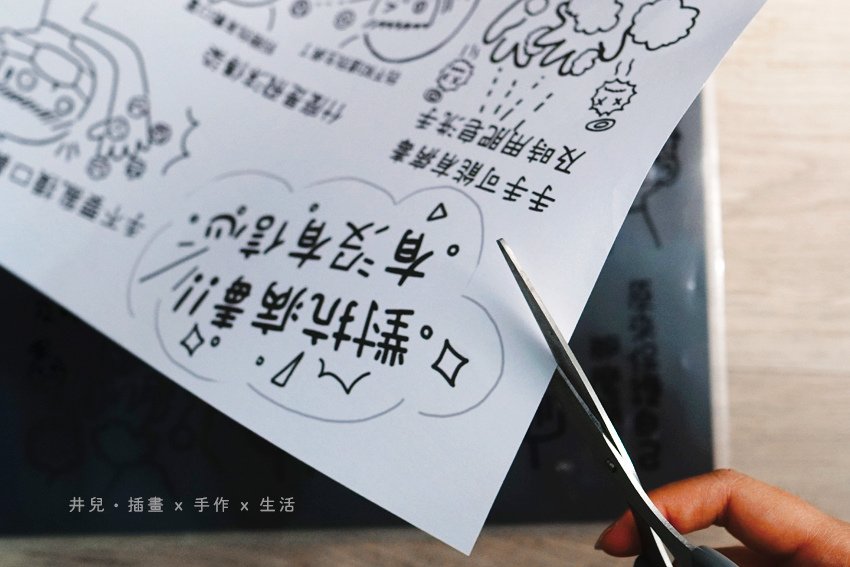 對抗病毒!!
有沒有信心
手手可能有病毒
及時用肥皂洗手
手不要亂摸口
什麼是飛沫傳染
井兒・插畫 x 手作 x 生活